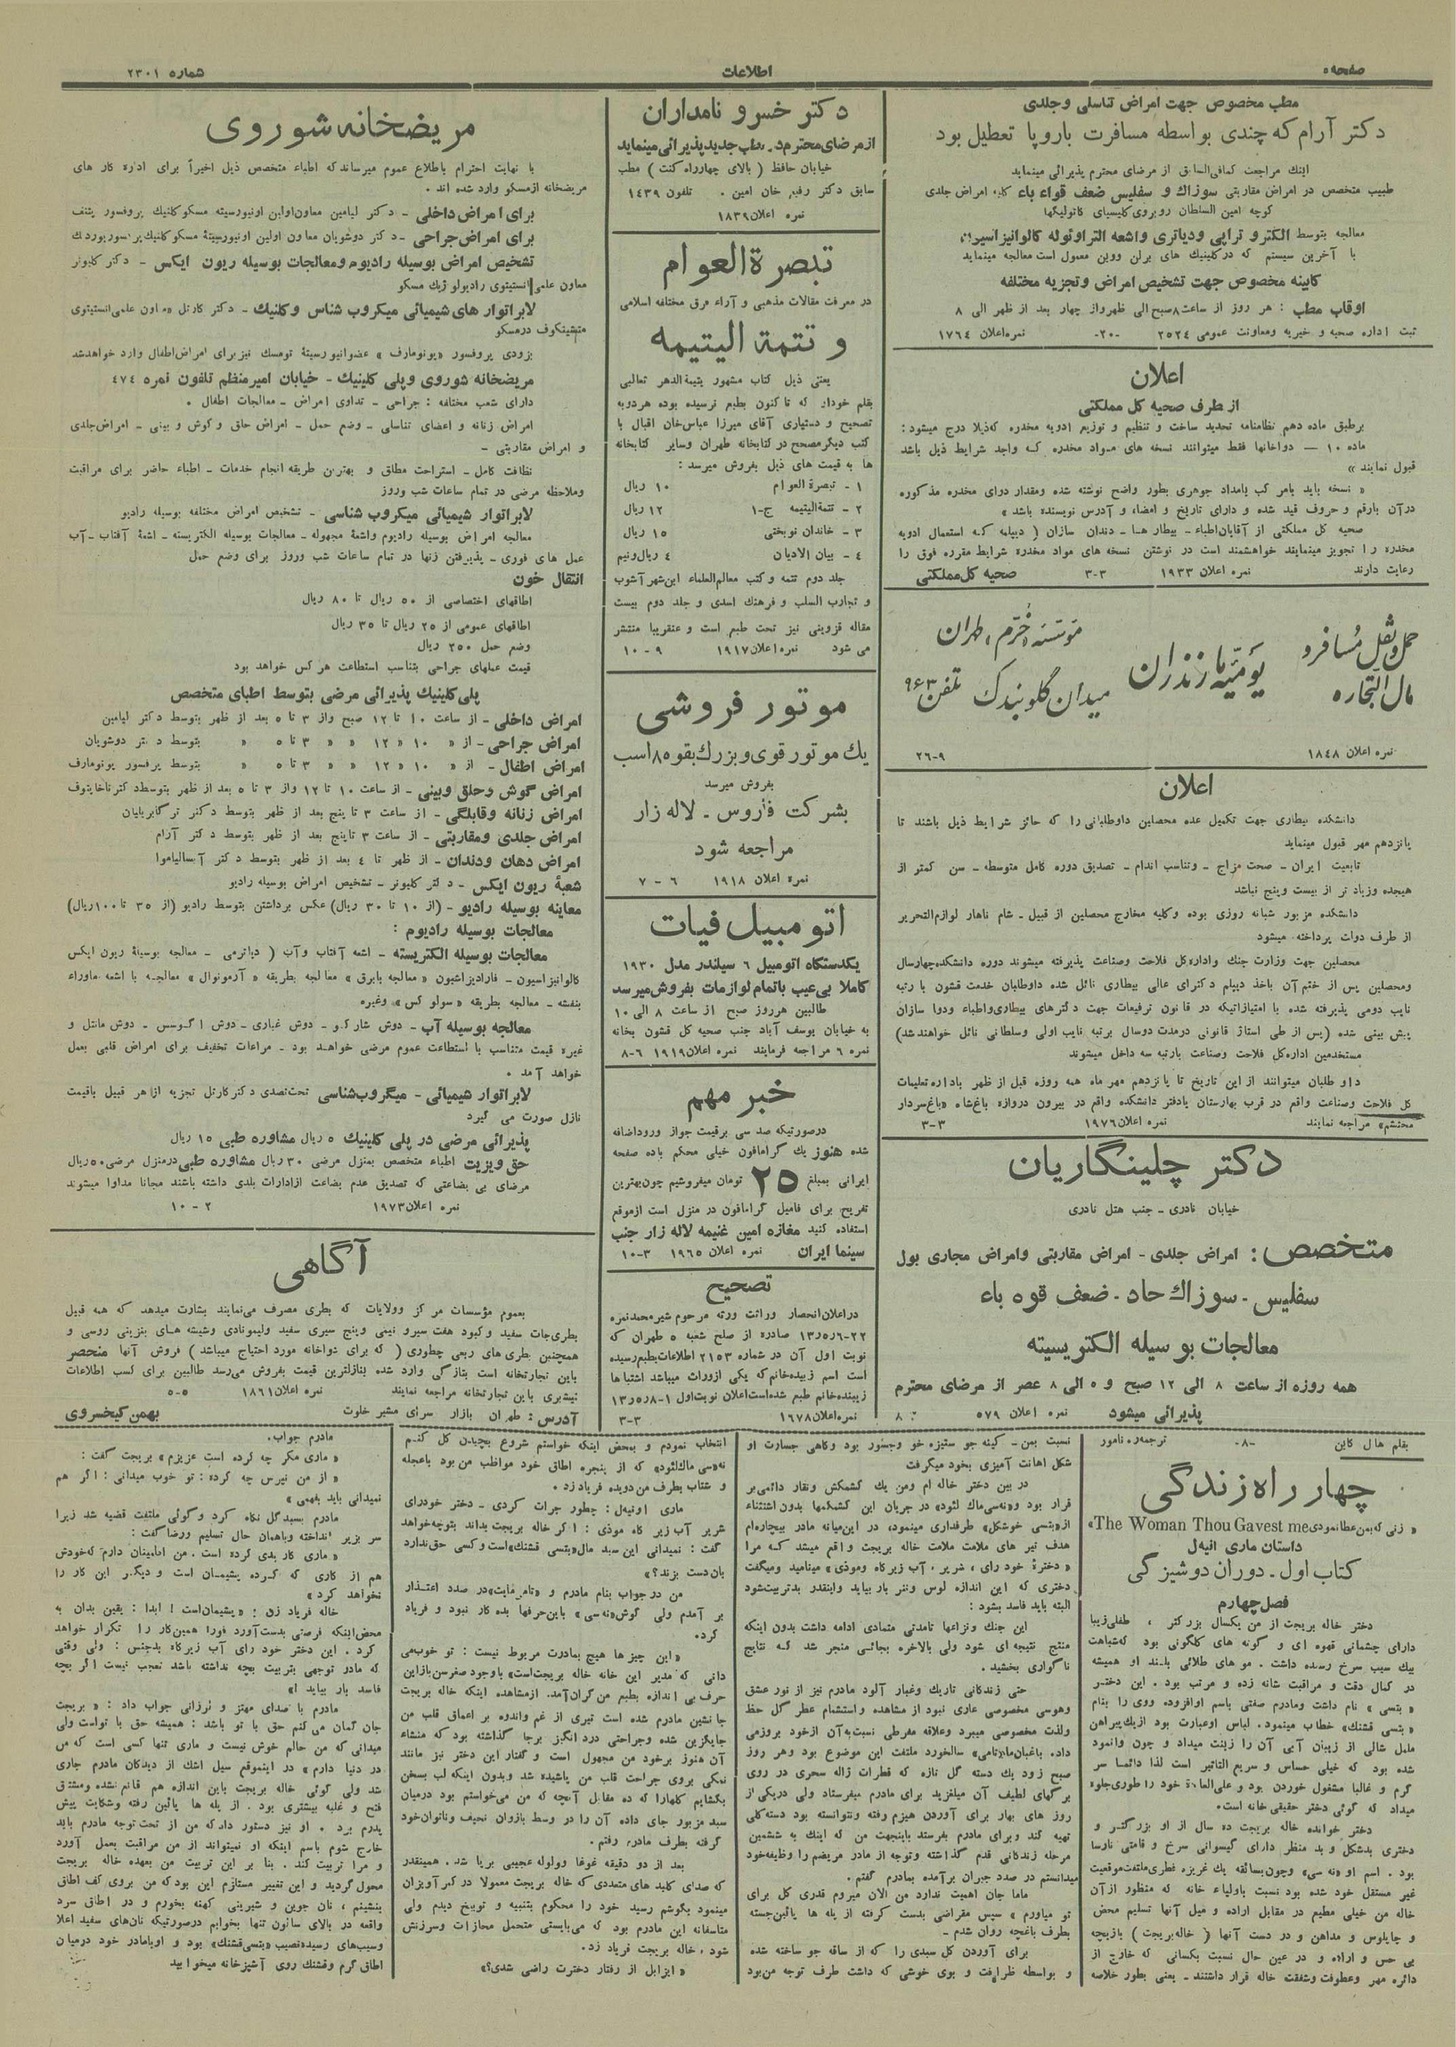 صفحه ۵
اطلاعات
شماره ۲۳۰۱
مطب مخصوص جهت امراض تناسلی و جلدی
دکتر آرام که چندی بواسطه مسافرت باروپا تعطیل بود
اینك مراجعت کمافی‌السابق از مرضای محترم پذیرائی مینماید
طبیب متخصص در امراض مقاربتی سوزاك و سفلیس ضعف قواء باء کلیه امراض جلدی
کوچه امین السلطان روبروی کلیسیای کاتولیکها
معالجه بتوسط الکترو تراپی ودیاتری واشعه التراویوله کالوانیزاسیون
با آخرین سیستم که در کلینیك های برلن ووین معمول است معالجه مینماید
کابینه مخصوص جهت تشخیص امراض وتجزیه مختلفه
اوقات مطب : هر روز از ساعت ۸ صبح الی ظهر واز چهار بعد از ظهر الی ۸
ثبت اداره صحیه و خیریه ومعاونت عمومی ۲۵۲۴ -۲۰- نمره اعلان ۱۷۶۴
اعلان
از طرف صحیه کل مملکتی
برطبق ماده دهم نظامنامه تحدید ساخت و تنظیم و توزیع ادویه مخدره که ذیلا درج میشود :
ماده ۱۰ — دواخانها فقط میتوانند نسخه های مواد مخدره که واجد شرایط ذیل باشد
قبول نمایند »
« نسخه باید بامر کب یامداد جوهری بطور واضح نوشته شده ومقدار دوای مخدره مذکوره
در آن بارقم و حروف قید شده و دارای تاریخ و امضاء و آدرس نویسنده باشد »
صحیه کل مملکتی از آقایان اطباء - بیطار ها - دندان سازان ( دیپلمه که استعمال ادویه
مخدره را تجویز مینمایند خواهشمند است در نوشتن نسخه های مواد مخدره شرایط مقرره فوق را
رعایت دارند نمره اعلان ۱۹۳۳ ۳-۳ صحیه کل مملکتی
حمل و نقل مسافر و مال التجاره
یومیه مازندران
مؤسسه اخترم ، طهران
میدان گلوبندک تلفن ۹۶۳
نمره اعلان ۱۸۴۸ ۹-۲۶
اعلان
دانشکده بیطاری جهت تکمیل عده محصلین داوطلبانی را که حائز شرایط ذیل باشند تا
پانزدهم مهر قبول مینماید
تابعیت ایران - صحت مزاج - وتناسب اندام - تصدیق دوره کامل متوسطه - سن کمتر از
هیجده وزیاد تر از بیست وپنج نباشد
دانشکده مزبور شبانه روزی بوده وکلیه مخارج محصلین از قبیل - شام ناهار لوازم‌التحریر
از طرف دولت پرداخته میشود
محصلین جهت وزارت جنك واداره کل فلاحت وصناعت پذیرفته میشوند دوره دانشکده چهارسال
ومحصلین پس از ختم آن باخذ دیپلم دکترای عالی بیطاری نائل شده داوطلبان خدمت قشون با رتبه
نایب دومی پذیرفته شده با امتیازاتیکه در قانون ترفیعات جهت دکترهای بیطاری واطباء ودوا سازان
پیش بینی شده (پس از طی استاژ قانونی درمدت دوسال برتبه نایب اولی وسلطانی نائل خواهند شد)
مستخدمین اداره کل فلاحت وصناعت بارتبه سه داخل میشوند
داو طلبان میتوانند از این تاریخ تا پانزدهم مهر ماه همه روزه قبل از ظهر باداره تعلیمات
کل فلاحت وصناعت واقع در قرب بهارستان یادفتر دانشکده واقع در بیرون دروازه باغ شاه «باغ سردار
محتشم» مراجعه نمایند نمره اعلان ۱۹۷۶ ۳-۳
دکتر چلینگاریان
خیابان نادری - جنب هتل نادری
متخصص : امراض جلدی - امراض مقاربتی وامراض مجاری بول
سفلیس - سوزاك حاد - ضعف قوه باء
معالجات بوسیله الکتریسیته
همه روزه از ساعت ۸ الی ۱۲ صبح و ۵ الی ۸ عصر از مرضای محترم
پذیرائی میشود نمره اعلان ۵۷۹
دکتر خسرو نامداران
از مرضای محترم در مطب جدید پذیرائی مینماید
خیابان حافظ ( بالای چهارراه کنت ) مطب
سابق دکتر رفیع خان امین . تلفون ۱۴۳۹
نمره اعلان ۱۸۳۹
تبصرة العوام
در معرفت مقالات مذهبی و آراء فرق مختلفه اسلامی
و تتمة الیتیمه
یعنی ذیل کتاب مشهور یتیمة الدهر ثعالبی
بقلم خودار که تا کنون بطبع نرسیده بوده هردو به
تصحیح و دستیاری آقای میرزا عباس خان اقبال با
کتب دیگر مصحح در کتابخانه طهران وسایر کتابخانه
ها به قیمت های ذیل بفروش میرسد :
۱ - تبصرة العوام ۱۰ ریال
۲ - تتمة‌الیتیمه ج-۱ ۱۲ ریال
۳ - خاندان نوبختی ۱۵ ریال
۴ - بیان الادیان ۴ ریال ونیم
جلد دوم تتمه و کتب معالم‌العلماء ابن شهر آشوب
و تجارب السلف و فرهنك اسدی و جلد دوم بیست
مقاله قزوینی نیز تحت طبع است و عنقریبا منتشر
می شود نمره اعلان ۱۹۱۷ ۹ - ۱۰
موتور فروشی
یك موتور قوی و بزرك بقوه ۸ اسب
بفروش میرسد
بشرکت فاروس - لاله زار
مراجعه شود
نمره اعلان ۱۹۱۸ ۶ - ۷
اتومبیل فیات
یکدستگاه اتومبیل ۶ سیلندر مدل ۱۹۳۰
کاملا بی عیب باتمام لوازمات بفروش میرسد
طالبین هرروز صبح از ساعت ۸ الی ۱۰
به خیابان یوسف آباد جنب صحیه کل قشون بخانه
نمره ۶ مراجعه فرمایند نمره اعلان ۱۹۱۹ ۶-۸
خبر مهم
درصورتیکه صد سی برقیمت جواز ورود اضافه
شده هنوز یك گرامافون خیلی محکم باده صفحه
ایرانی بمبلغ ۲۵ تومان میفروشیم چون بهترین
تفریح برای فامیل گرامافون در منزل است از موقع
استفاده کنید مغازه امین غنیمه لاله زار جنب
سینما ایران نمره اعلان ۱۹۶۵ ۳-۱۰
تصحیح
در اعلان انحصار وراثت ورثه مرحوم شیرمحمد نمره
صادره از صلح شعبه ۵ طهران که
نوبت اول آن در شماره ۲۱۵۳ اطلاعات بطبع رسیده
است اسم زبیده خانم که یکی از وراث میباشد اشتباها
زیبنده خانم طبع شده است اعلان نوبت اول
نمره اعلان ۱۶۷۸ ۳-۳
مریضخانه شوروی
با نهایت احترام باطلاع عموم میرساند که اطباء متخصص ذیل اخیراً برای اداره کار های
مریضخانه از مسکو وارد شده اند .
برای امراض داخلی - دکتر لیامین معاون اولین اونیورسیته مسکو کلنیك پروفسور پلتنف
برای امراض جراحی - دکتر دوشویان معاون اولین اونیورسیتۀ مسکو کلنیك پرفسور بوردنك
تشخیص امراض بوسیله رادیوم ومعالجات بوسیله ریون ایکس - دکتر کلبونر
معاون علمی انستیتوی رادیولوژیك مسکو
لابراتوار های شیمیائی میکروب شناس وکلنیك - دکتر کارتل معاون علمی انستیتوی
متشینکوف درمسکو
بزودی پروفسور «یونومارف» عضوانیورسیتۀ تومسك نیز برای امراض اطفال وارد خواهد شد
مریضخانه شوروی وپلی کلینیك - خیابان امیر منظم تلفون نمره ۴۷۴
دارای شعب مختلفه : جراحی - تداوی امراض - معالجات اطفال .
امراض زنانه و اعضای تناسلی - وضع حمل - امراض حلق و گوش و بینی - امراض جلدی
و امراض مقاربتی -
نظافت کامل - استراحت مطلق و بهترین طریقه انجام خدمات - اطباء حاضر برای مراقبت
وملاحظه مرضی در تمام ساعات شب وروز
لابراتوار شیمیائی میکروب شناسی - تشخیص امراض مختلفه بوسیله رادیو
معالجه امراض بوسیله رادیوم واشعۀ مجهوله - معالجات بوسیله الکتریسته - اشعۀ آفتاب - آب
عمل های فوری - پذیرفتن زنها در تمام ساعات شب وروز برای وضع حمل
انتقال خون
اطاقهای اختصاصی از ۵۰ ریال تا ۸۰ ریال
اطاقهای عمومی از ۲۵ ریال تا ۳۵ ریال
وضع حمل ۲۵۰ ریال
قیمت عملهای جراحی بتناسب استطاعت هرکس خواهد بود
پلی کلینیك پذیرائی مرضی بتوسط اطبای متخصص
امراض داخلی - از ساعت ۱۰ تا ۱۲ صبح واز ۳ تا ۵ بعد از ظهر بتوسط دکتر لیامین
امراض جراحی - از « ۱۰ « ۱۲ « « ۳ تا ۵ « بتوسط دکتر دوشویان
امراض اطفال - از « ۱۰ « ۱۲ « « ۳ تا ۵ « بتوسط پرفسور یونومارف
امراض گوش وحلق وبینی - از ساعت ۱۰ تا ۱۲ واز ۳ تا ۵ بعد از ظهر بتوسط دکتر ناخایتوف
امراض زنانه وقابلگی - از ساعت ۳ تا پنج بعد از ظهر بتوسط دکتر ترگابریلیان
امراض جلدی ومقاربتی - از ساعت ۳ تا پنج بعد از ظهر بتوسط دکتر آرام
امراض دهان ودندان - از ظهر تا ۴ بعد از ظهر بتوسط دکتر آبسالیاموا
شعبۀ ریون ایکس - دکتر کلبونر - تشخیص امراض بوسیله رادیو
معاینه بوسیله رادیو - (از ۱۰ تا ۳۰ ریال) عکس برداشتن بتوسط رادیو (از ۳۵ تا ۱۰۰ ریال)
معالجات بوسیله رادیوم :
معالجات بوسیله الکتریسته - اشعه آفتاب وآب ( دیاترمی - معالجه بوسیلۀ ریون ایکس
کالوانیزاسیون - فارادیزاسیون «معالجه بابرق» معالجه بطریقه «آرسونوال» معالجه با اشعه ماوراء
بنفشه - معالجه بطریقه «سولو کس» وغیره
معالجه بوسیله آب - دوش شارکو - دوش غباری - دوش اگوسس - دوش مانتل و
غیره قیمت متناسب با استطاعت عموم مرضی خواهد بود - مراعات تخفیف برای امراض قلبی بعمل
خواهد آمد .
لابراتوار شیمیائی - میکروب شناسی تحت تصدی دکتر کارتل تجزیه از هر قبیل باقیمت
نازل صورت می گیرد
پذیرائی مرضی در پلی کلینیك ۵ ریال مشاوره طبی ۱۵ ریال
حق ویزیت اطباء متخصص بمنزل مرضی ۳۰ ریال مشاوره طبی درمنزل مرضی ۵۰ ریال
مرضای بی بضاعتی که تصدیق عدم بضاعت ازادارات بلدی داشته باشند مجانا مداوا میشوند
نمره اعلان ۱۹۷۳ ۲ - ۱۰
آگاهی
بعموم مؤسسات مرکز وولایات که بطری مصرف می‌نمایند بشارت میدهد که همه قبیل
بطری‌جات سفید وکبود هفت سیرو نیمی وپنج سیری سفید ولیمونادی وشیشه های بنزینی روسی و
همچنین بطری های ربعی چطوری ( که برای دواخانه مورد احتیاج میباشد ) فروش آنها منحصر
باین تجارتخانه است بتازگی وارد شده بنازلترین قیمت بفروش می‌رسد طالبین برای کسب اطلاعات
بیشتری باین تجارتخانه مراجعه نمایند نمره اعلان ۱۸۶۱ ۵-۵
آدرس : طهران بازار سرای مشیر خلوت بهمن کیخسروی
بقلم هال کاین -۸- ترجمه ر. نامور
چهار راه زندگی
« زنی که بمن عطا نمودی The Woman Thou Gavest me»
داستان ماری انیه‌ل
کتاب اول - دوران دوشیزگی
فصل چهارم
دختر خاله بریجت از من یکسال بزرگتر ، طفلی زیبا
دارای چشمانی قهوه ای و گونه های گلگونی بود که شباهت
بیك سیب سرخ رسیده داشت . مو های طلائی بلند او همیشه
در کمال دقت و مراقبت شانه زده و مرتب بود . این دختر
« بتسی » نام داشت ومادرم صفتی باسم اوافزوده ووی را بنام
«بتسی قشنك» خطاب مینمود. لباس اوعبارت بود ازیك پیراهن
ململ شالی از زیبان آبی آن را زینت میداد و چون وانمود
شده بود که خیلی حساس و سریع التاثیر است لذا دائما سر
گرم و غالبا مشغول خوردن بود و علی‌العادة خود را طوری جلوه
میداد که گوئی دختر حقیقی خانه است.
دختر خوانده خاله بریجت ده سال از او بزرگتر و
دختری بدشکل و بد منظر دارای گیسوانی سرخ و قامتی نارسا
بود . اسم او «نه سی» وچون بسائقه یك غریزه فطری ملتفت موقعیت
غیر مستقل خود شده بود نسبت باولیاء خانه که منظور از آن
خاله من خیلی مطیع در مقابل اراده و میل آنها تسلیم محض
و چاپلوس و مداهن و در دست آنها (خاله بریجت) بازیچه
بی حس و اراده و در عین حال نسبت بکسانی که خارج از
دائره مهر وعطوفت وشفقت خاله قرار داشتند - یعنی بطور خلاصه
نسبت بمن - کینه جو ستیزه خو وجسور بود وگاهی جسارت او
شکل اهانت آمیزی بخود میگرفت
در بین دختر خاله ام ومن یك کشمکش ونقار دائمی بر
قرار بود و «نه‌سی ماك لئود» در جریان این کشمکها بدون استثناء
از «بتسی خوشگل» طرفداری مینمود، در این میانه مادر بیچاره‌ام
هدف تیر های ملامت ملامت خاله بریجت واقع میشد که مرا
« دخترۀ خود رای ، شریر ، آب زیرکاه وموذی» مینامید ومیگفت
دختری که این اندازه لوس وننر بار بیاید واینقدر بدتربیت شود
البته باید فاسد بشود :
این جنك ونزاعها تامدتی متمادی ادامه داشت بدون اینکه
منتج نتیجه ای شود ولی بالاخره بجائی منجر شد که نتایج
ناگواری بخشید .
حتی زندگانی تاریك وغبار آلود مادرم نیز از نور عشق
وهوسی مخصوصی عاری نبود از مشاهده واستشمام عطر گل حظ
ولذت مخصوصی میبرد وعلاقه مفرطی نسبت به آن از خود بروزمی
داد. باغبان ما «تامی» سالخورد ملتفت این موضوع بود وهر روز
صبح زود یك دسته گل تازه که قطرات ژاله سحری در روی
برگهای لطیف آن میلغزید برای مادرم میفرستاد ولی دریکی از
روز های بهار برای آوردن هیزم رفته ونتوانسته بود دسته گلی
تهیه کند وبرای مادرم بفرستد باینجهت من که اینك به ششمین
مرحله زندگانی قدم گذاشته وتوجه از مادر مریضم را وظیفه خود
میدانستم در صدد جبران برآمده بمادرم گفتم .
ماما جان اهمیت ندارد من الان میروم قدری گل برای
تو میاورم » سپس مقراضی بدست گرفته از پله ها پائین جسته
بطرف باغچه روان شدم -
برای آوردن گل سبدی را که از ساقه جو ساخته شده
و بواسطه ظرافت و بوی خوشی که داشت طرف توجه من بود
انتخاب نمودم و بمحض اینکه خواستم شروع بچیدن گل کنم
نه «سی ماك لئود» که از پنجره اطاق خود مواظب من بود باعجله
و شتاب بطرف من دویده فریاد زد .
ماری اونیه‌ل: چطور جرات کردی - دختر خودرای
شریر آب زیر کاه موذی : اگر خاله بریجت بداند بتوچه خواهد
گفت : نمیدانی این سبد مال «بتسی قشنك» است و کسی حق ندارد
بان دست بزند؟»
من در جواب بنام مادرم و «تامی» در صدد اعتذار
بر آمدم ولی گوش «نه‌سی» باین حرفها بده کار نبود و فریاد
کرد.
«این چیز ها هیچ بمادرت مربوط نیست : تو خوب می
دانی که مدیر این خانه خاله بریجت است» باوجود صغر سن بازاین
حرف بی اندازه بطبع من گران آمد. ازمشاهده اینکه خاله بریجت
جانشین مادرم شده است تیری از غم واندوه بر اعماق قلب من
جایگزین شده وجراحتی درد انگیز برجا گذاشته بود که منشاء
آن هنوز برخود من مجهول است و گفتار این دختر نیز مانند
نمکی بروی جراحت قلب من پاشیده شد وبدون اینکه لب بسخن
بگشایم گلهارا که ده مقابل آنچه که من می‌خواستم بود درمیان
سبد مزبور جای داده آن را در وسط بازوان نحیف وناتوان خود
گرفته بطرف مادرم رفتم .
بعد از دو دقیقه غوغا و ولوله عجیبی برپا شد . همینقدر
که صدای کلید های متعددی که خاله بریجت معمولا در کمر آویزان
مینمود بگوشم رسید خود را محکوم بتنبیه و توبیخ دیدم ولی
متاسفانه این مادرم بود که می‌بایستی متحمل مجازات وسرزنش
شود . خاله بریجت فریاد زد.
« ایزابل از رفتار دخترت راضی شدی؟»
مادرم جواب.
« ماری مگر چه کرده است عزیزم » بریجت گفت :
« از من نپرس چه کرده : تو خوب میدانی : اگر هم
نمیدانی باید بفهمی »
مادرم بسبد گل نگاه کرد وگوئی ملتفت قضیه شد زیرا
سر بزیر انداخته وباهمان حال تسلیم ورضا گفت :
« ماری کار بدی کرده است . من اطمینان دارم که خودش
هم از کاری که کرده پشیمان است و دیگر این کار را
نخواهد کرد »
خاله فریاد زد: «پشیمان است ! ابدا : یقین بدان به
محض اینکه فرصتی بدست آورد فورا همین کار را تکرار خواهد
کرد . این دختر خود رای آب زیرکاه بدجنس : ولی وقتی
که مادر توجهی بتربیت بچه نداشته باشد تعجب نیست اگر بچه
فاسد بار بیاید !»
مادرم با صدای مهتز و لرزانی جواب داد : « بریجت
جان گمان می کنم حق با تو باشد : همیشه حق با تواست ولی
میدانی که من حالم خوش نیست و ماری تنها کسی است که من
در دنیا دارم » در اینموقع سیل اشك از دیدگان مادرم جاری
شد ولی گوئی خاله بریجت باین اندازه هم قانع نشده ومشتاق
فتح و غلبه بیشتری بود . از پله ها پائین رفته وشکایت پیش
پدرم برد . او نیز دستور داد که من از تحت توجه مادرم باید
خارج شوم باسم اینکه او نمیتواند از من مراقبت بعمل آورد
و مرا تربیت کند . بنا بر این تربیت من بعهده خاله بریجت
محول گردید و این تغییر مستلزم این بود که من بروی کف اطاق
بنشینم ، نان جوین و شیرینی کهنه بخورم و در اطاق سرد
واقعه در بالای سالون تنها بخوابم درصورتیکه نان‌های سفید اعلا
وسیب‌های رسیده نصیب «بتسی قشنك» بود و اوبامادر خود درمیان
اطاق گرم وقشنك روی آشپزخانه میخوابید